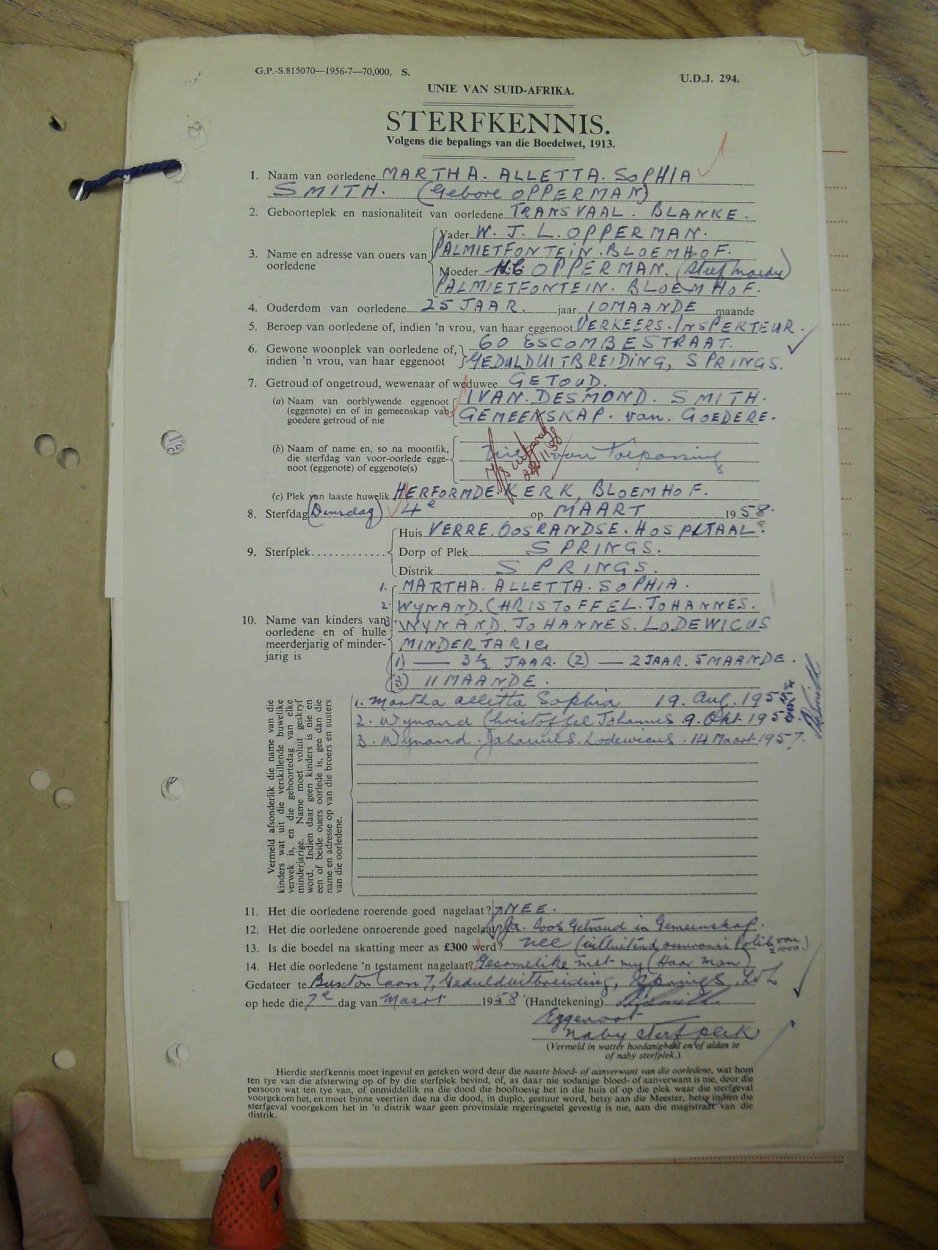 G.P.-S.815070—1956-7—70,000. S.
U.D.J. 294.
UNIE VAN SUID-AFRIKA.
STERFKENNIS.
Volgens die bepalings van die Boedelwet, 1913.
1. Naam van oorledene MARTHA. ALLETTA. SOPHIA
SMITH. (Gebore OPPERMAN)
2. Geboorteplek en nasionaliteit van oorledene TRANSVAAL. BLANKE.
3. Name en adresse van ouers van oorledene
Vader W. J. L. OPPERMAN.
PALMIETFONTEIN. BLOEMHOF.
Moeder H.C OPPERMAN. (Stief Moeder)
PALMIETFONTEIN. BLOEMHOF.
4. Ouderdom van oorledene 25 JAAR. jaar 10 MAANDE maande
5. Beroep van oorledene of, indien 'n vrou, van haar eggenoot VERKEERS. INSPEKTEUR.
6. Gewone woonplek van oorledene of, indien 'n vrou, van haar eggenoot
60 ESCOMBESTRAAT.
GEDULDUITBREIDING, SPRINGS.
7. Getroud of ongetroud, wewenaar of weduwee GETOUD.
(a) Naam van oorblywende eggenoot (eggenote) en of in gemeenskap van goedere getroud of nie
IVAN. DESMOND. SMITH.
GEMEENSKAP. van. GOEDERE.
(b) Naam of name en, so na moontlik, die sterfdag van voor-oorlede eggenoot (eggenote) of eggenote(s)
Nie van toepassing
(c) Plek van laaste huwelik HERFORMDE KERK, BLOEMHOF.
8. Sterfdag (Dinsdag) 4e op MAART 1958.
9. Sterfplek
Huis VERRE. OOSRANDSE. HOSPITAAL.
Dorp of Plek SPRINGS.
Distrik SPRINGS.
10. Name van kinders van oorledene en of hulle meerderjarig of minderjarig is
1. MARTHA. ALLETTA. SOPHIA.
2. WYNAND. CHRISTOFFEL. JOHANNES.
3 WYNAND. JOHANNES. LODEWICUS
MINDERJARIG
(1) — 3½ JAAR. (2) — 2 JAAR. 5 MAANDE.
(3) 11 MAANDE.
Vermeld afsonderlik die name van die kinders wat uit die verskillende huwelike verwek is, en die geboortedag van elke minderjarige. Name moet voluit geskryf word. Indien daar geen kinders is nie en een of beide ouers oorlede is, gee dan die name en adresse op van die broers en susters van die oorledene.
1. Martha alletta Sophia 19. Aug. 195
2. Wynand Christoffel Johannes 9. Okt. 195
3. Wynand Johannes. Lodewicus. 14 Maart 1957.
11. Het die oorledene roerende goed nagelaat? NEE.
12. Het die oorledene onroerende goed nagelaat? Ja. Getroud in Gemeenskap.
13. Is die boedel na skatting meer as £300 werd? nee (uitsluitend Polis van
14. Het die oorledene 'n testament nagelaat? Gesamelike met my (Haar man)
Gedateer te Buxton Laan 7, Gedulduitbreiding, Springs,
op hede die 7e dag van Maart 1958 (Handtekening)
Eggenoot
naby sterfplek
(Vermeld in watter hoedanigheid en of aldan te of naby sterfplek.)
Hierdie sterfkennis moet ingevul en geteken word deur die naaste bloed- of aanverwant van die oorledene, wat hom
ten tye van die afsterwing op of by die sterfplek bevind, of, as daar nie sodanige bloed- of aanverwant is nie, deur die
persoon wat ten tye van, of onmiddellik na die dood die hooftoesig het in die huis of op die plek waar die sterfgeval
voorgekom het, en moet binne veertien dae na die dood, in duplo, gestuur word, hetsy aan die Meester, hetsy indien die
sterfgeval voorgekom het in 'n distrik waar geen provinsiale regeringsetel gevestig is nie, aan die magistraat van die
distrik.